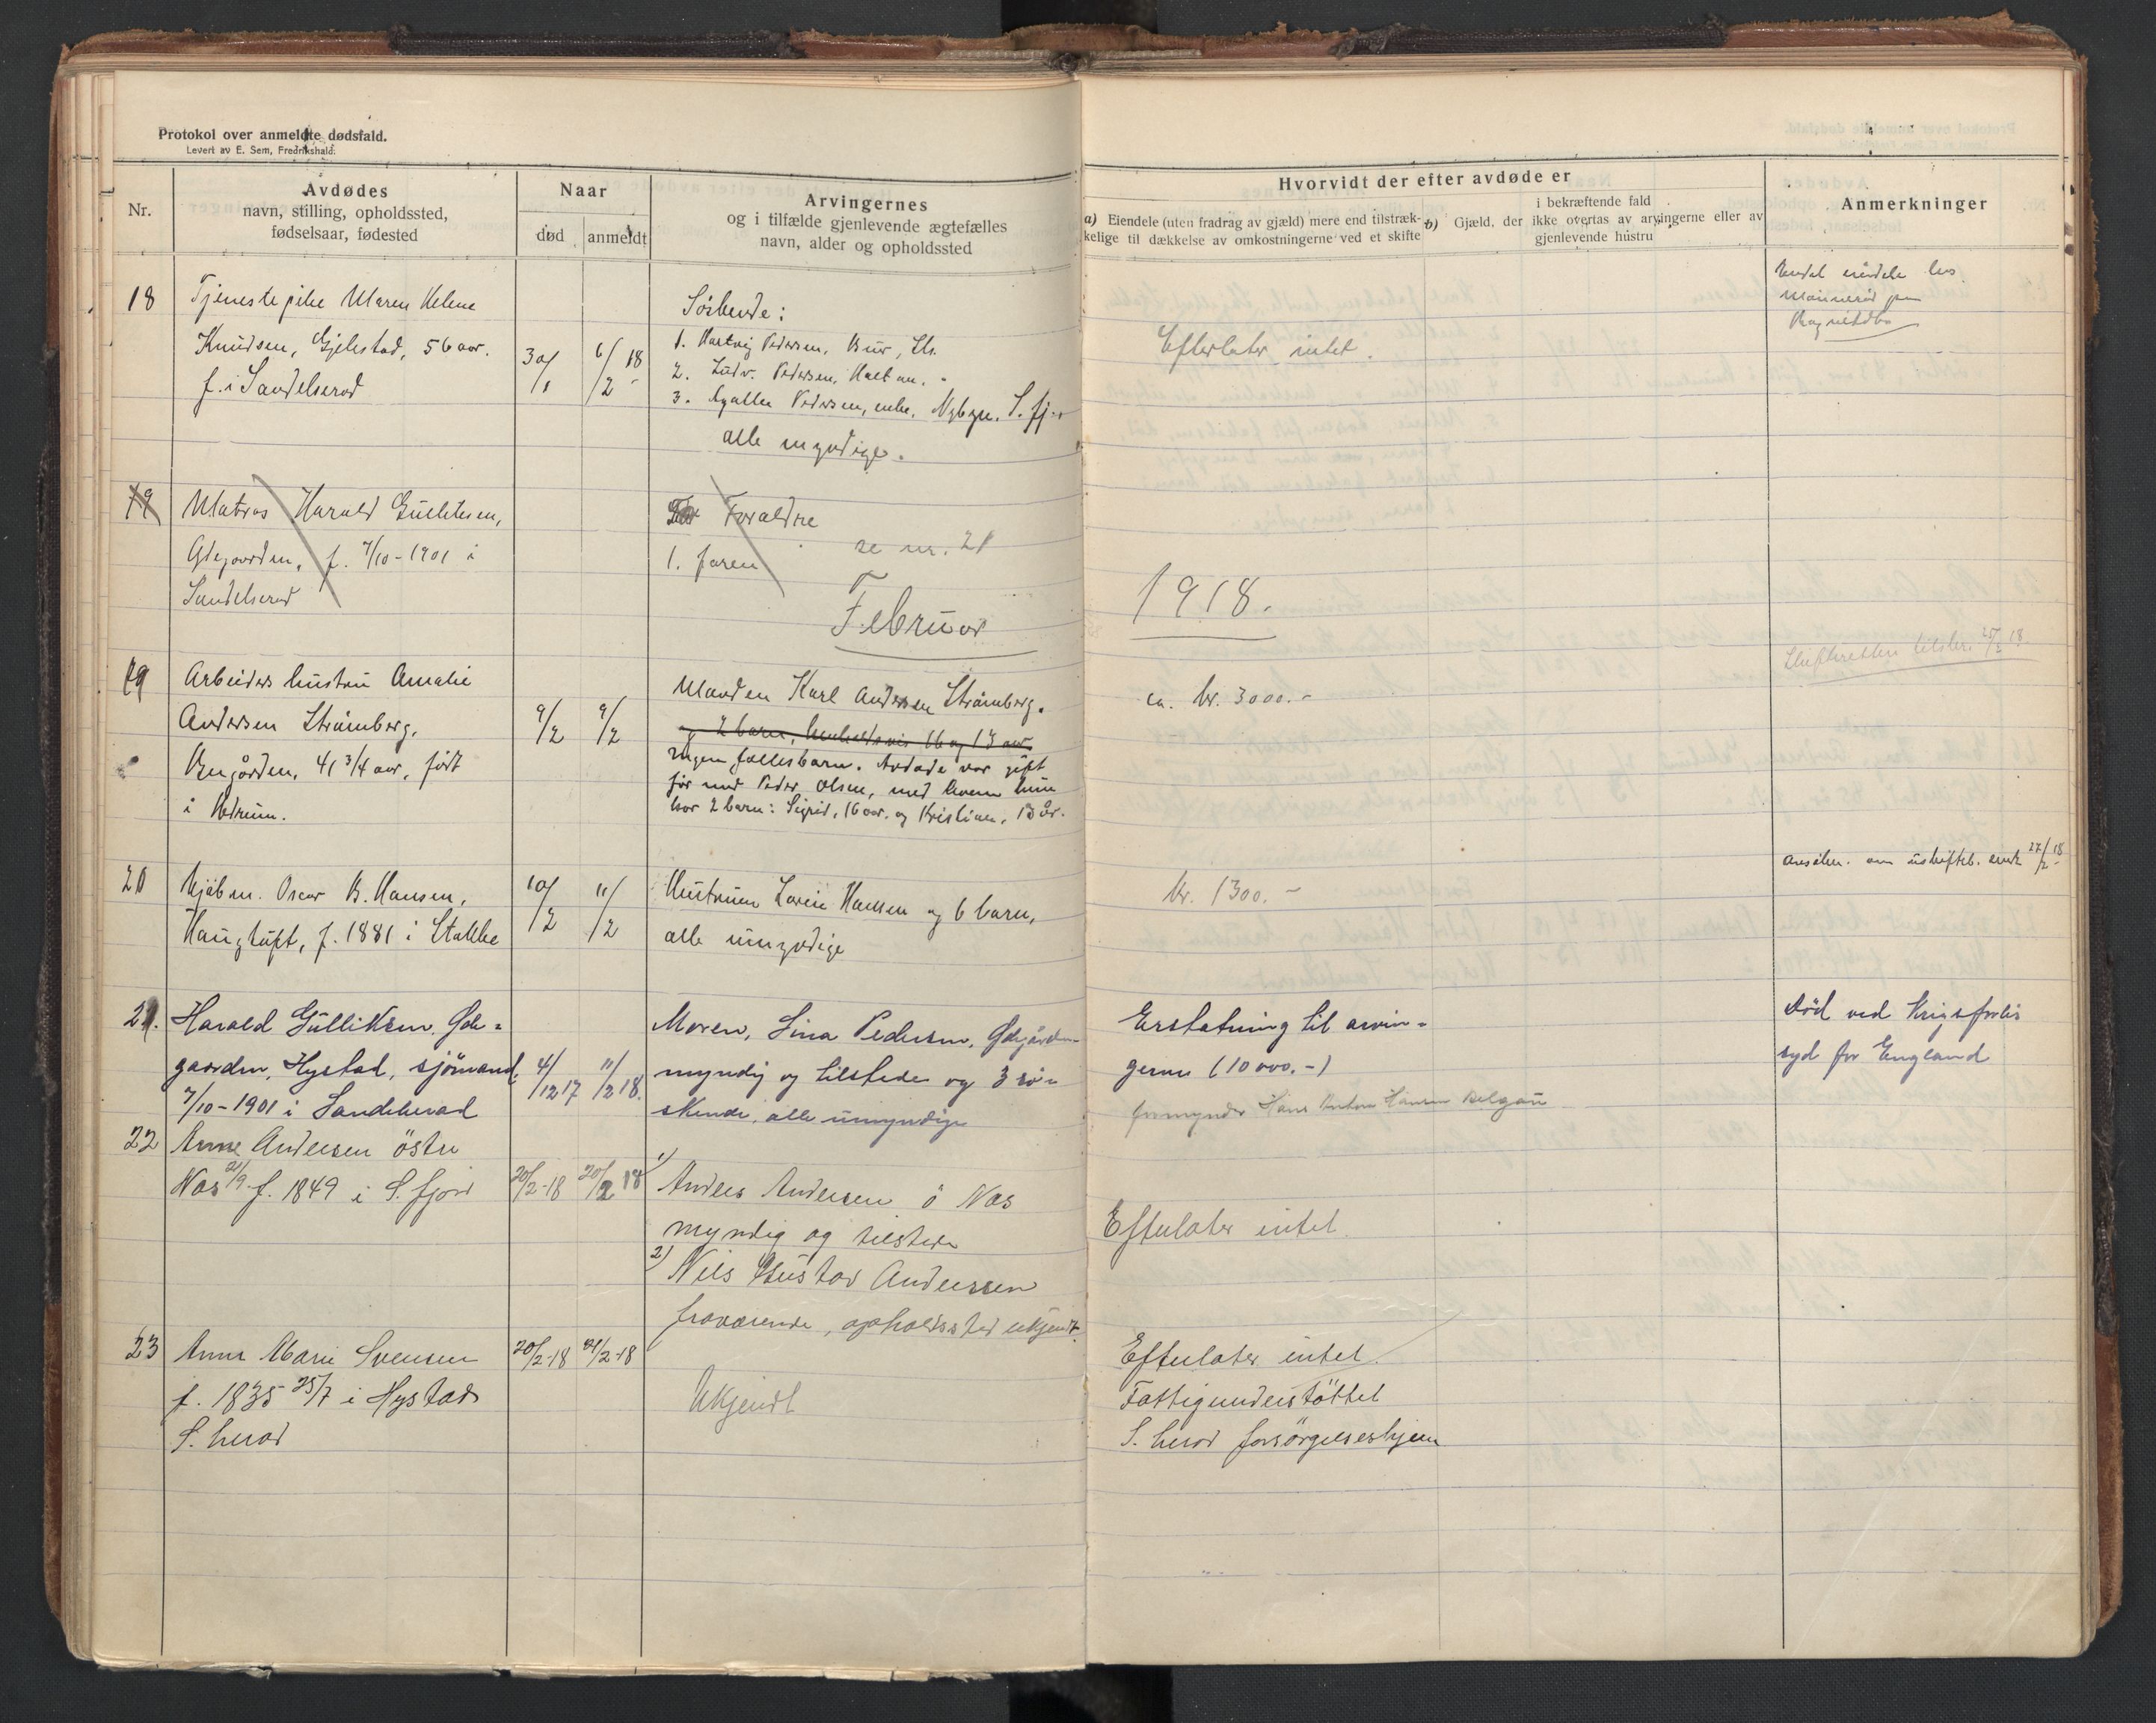 Protokol over anmeldte dødsfald.
Levert av E. Sem, Fredrikshald.
Nr.
Avdødes
navn, stilling, opholdssted,
fødselsaar, fødested
Naar
død
anmeldt
Arvingernes
og i tilfælde gjenlevende ægtefælles
navn, alder og opholdssted
Hvorvidt der efter avdøde er
a) Eiendele (uten fradrag av gjæld) mere end tilstræk-
kelige til dækkelse av omkostningerne ved et skifte
b) Gjæld, der
i bekræftende fald
ikke overtas av arvingerne eller av
gjenlevende hustru
Anmerkninger
18
Tjenestepike Maren Helene
Knudsen, Gjelstad, 56 aar.
f. i Sandeherad
30/1
6/2 18
Søskende:
1. Hartvig Pedersen, Bur, Sh.
2. Ludv. Pedersen,
3. Pedersen, enke, Nybyen, S.fj.
alle myndige.
Efterlater intet.
Endel eiendele hos
19
Matros Harald Gulliksen,
f. 7/10-1901 i
Sandeherad
Forældre
1. faren
se nr. 21
Februar
1918.
19
Arbeiders hustru Amalie
Andersen Strømberg,
41 3/4 aar, født
i Hedrum.
9/2
9/2
Manden Karl Andersen Strømberg.
og 2 barn, henholdsvis 16 og 13 aar
Ingen fællesbarn. Avdøde var gift
før med Peder Olsen, med hvem hun
har 2 barn: Sigrid, 16 aar. og Kristian, 13 år.
ca. kr. 3000.-
Skifteretten tilskr. 25/2 18.
20
Kjøbm. Oscar B. Hansen,
Haugtuft, f. 1881 i Stokke
10/2
11/2
Hustruen Lovise Hansen og 6 barn,
alle umyndige
kr. 1300.-
om uskifteb. 27/2 18
21.
Harald Gulliksen, Øde-
gaarden, Hystad, sjømand,
7/10-1901 i Sandeherad
4/12 17
11/2 18.
Moren, Lina Pedersen, Ødegården
myndig og tilstede og 3 sø-
skende, alle umyndige
Erstatning til arvin-
gerne (10000.-)
formynder Hans Anton Hansen
Død ved Krigsforlis
syd for England
22
Anne Andersen östre
Nes 21/9 f. 1849 i S. fjord
20/2-18
20/2 18
1) Anders Andersen ö Nes
myndig og tilstede
2) Nils Gustav Anderssen
fraværende, opholdssted ukjendt.
Efterlater intet.
23
Anne Marie Svensen
f. 1835 25/7 i Hystad
S. herad
20/2-18
21/2-18
Ukjendt
Efterlater intet.
Fattigunderstöttet
S. herad forsörgelseshjem